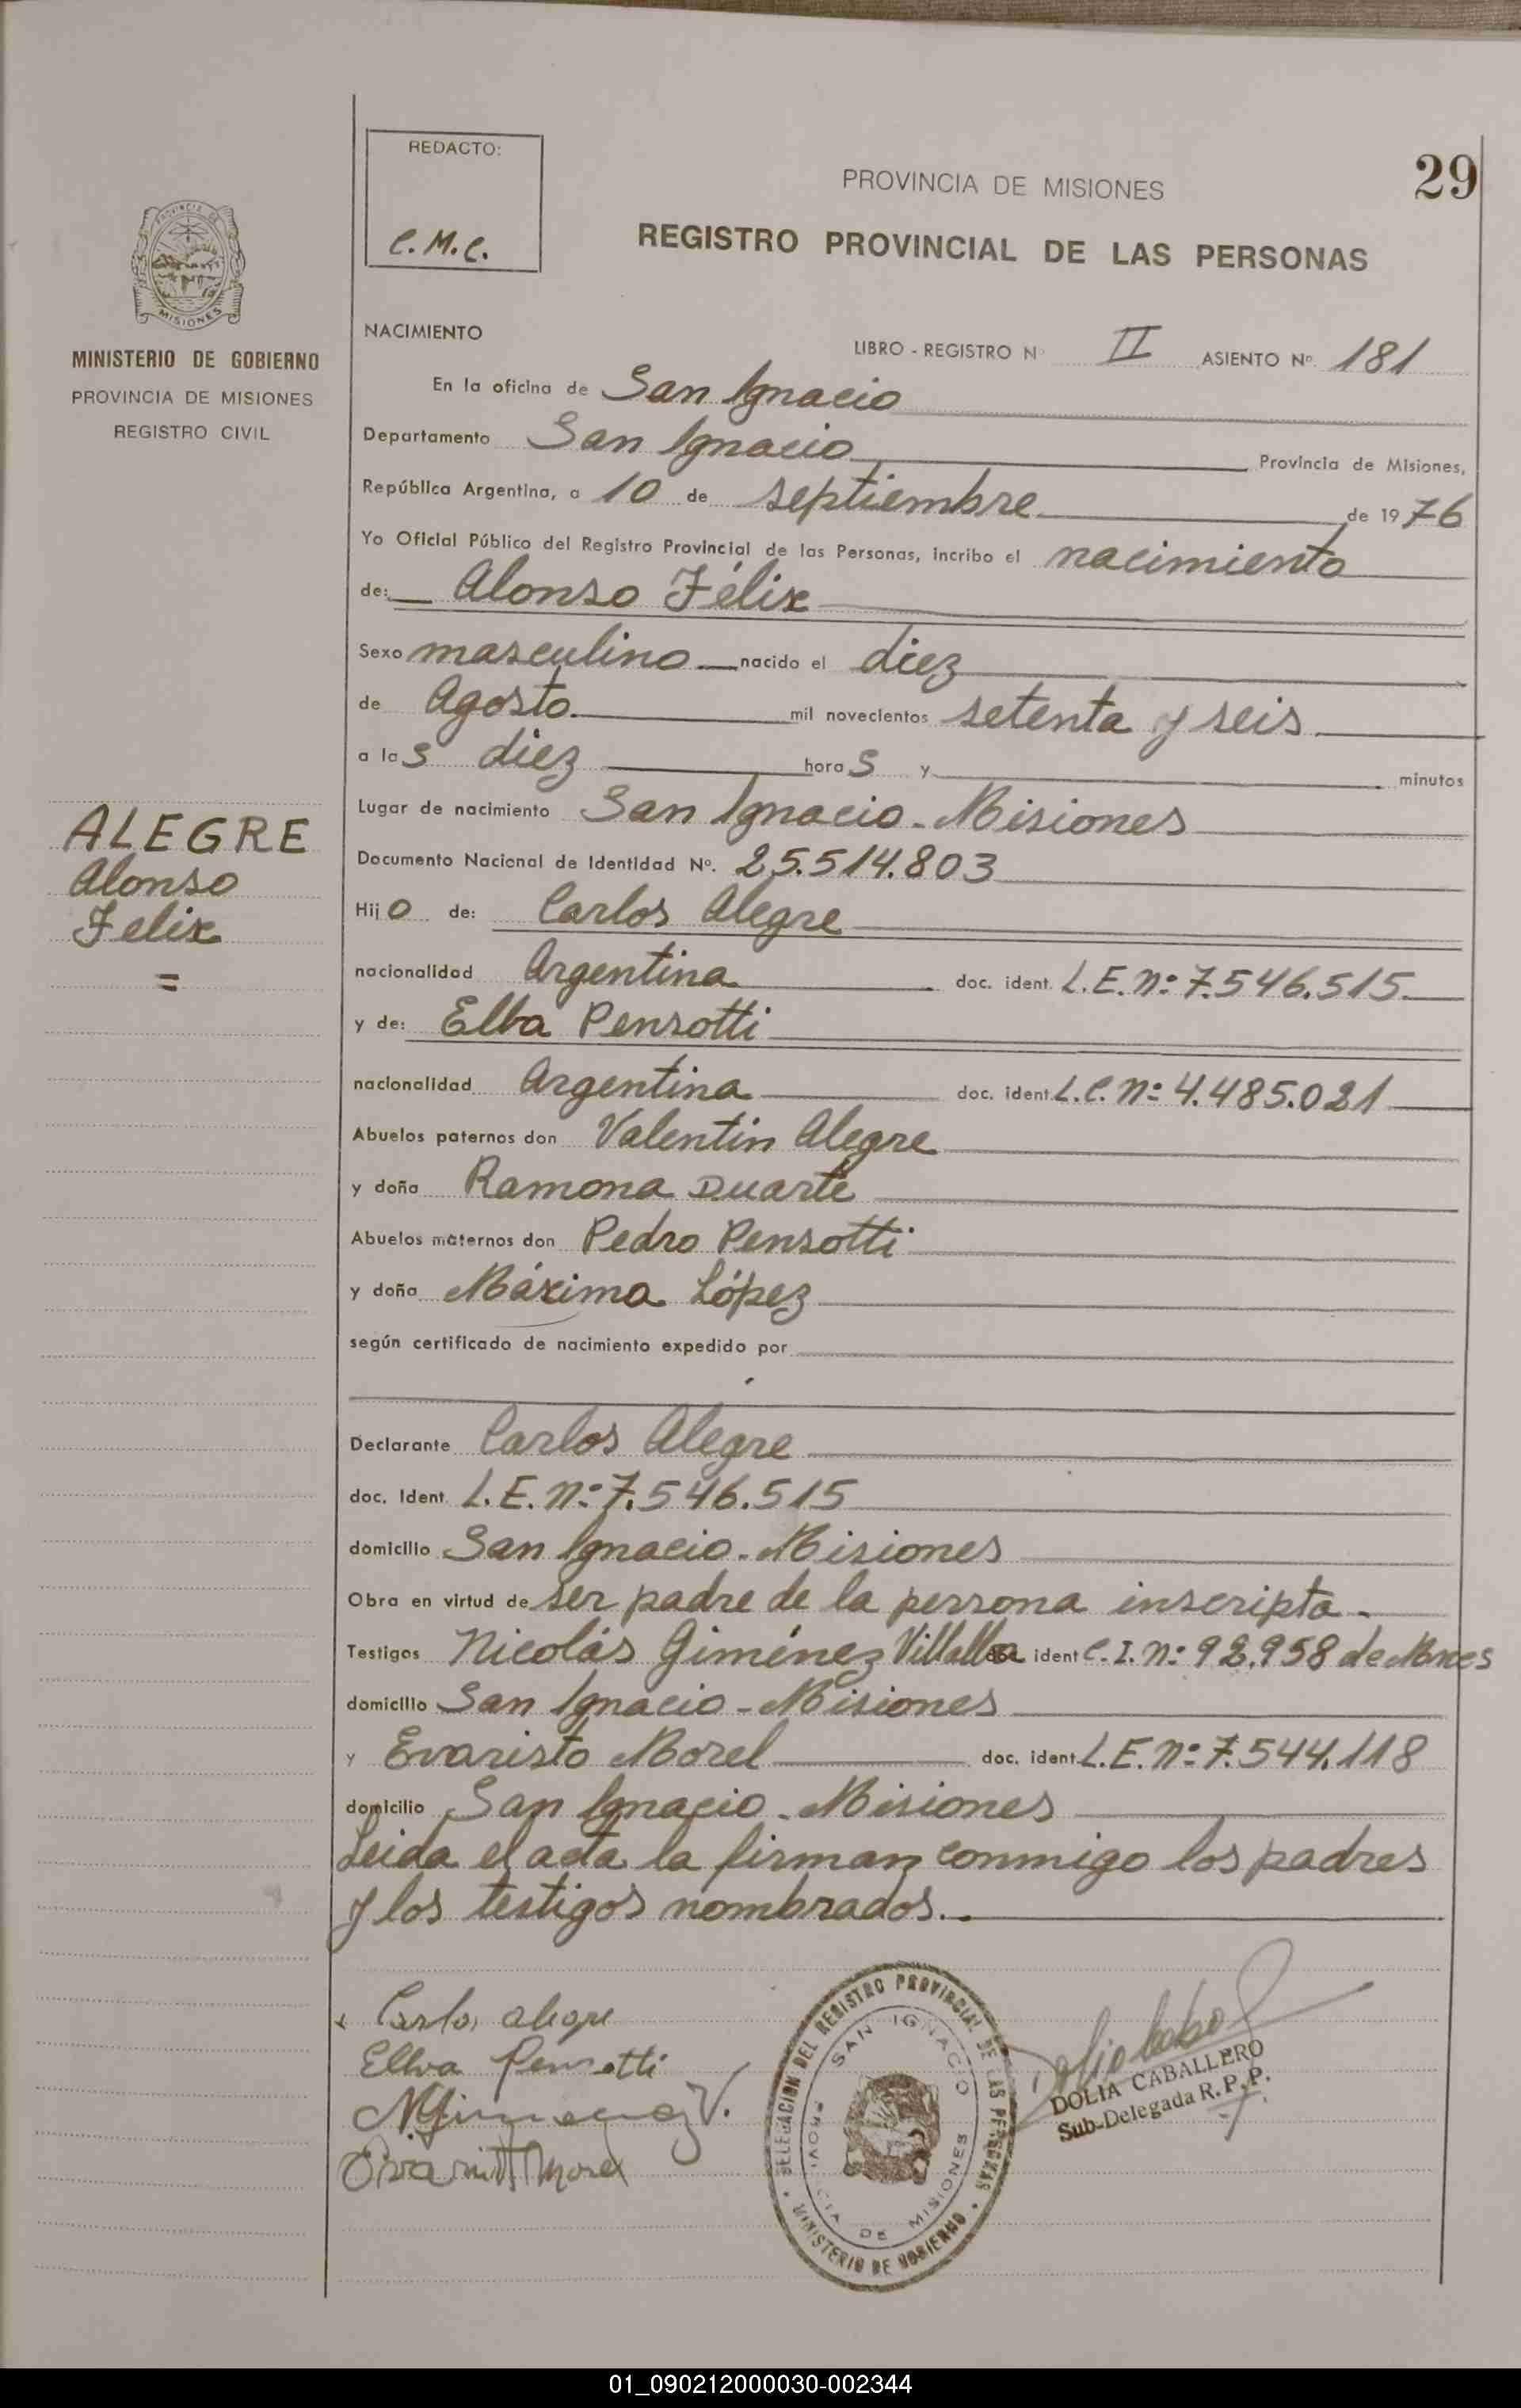 REDACTO:
C.M.C.
29
PROVINCIA DE MISIONES
REGISTRO PROVINCIAL DE LAS PERSONAS
PROVINCIA DE
MISIONES
MINISTERIO DE GOBIERNO
PROVINCIA DE MISIONES
REGISTRO CIVIL
NACIMIENTO
LIBRO - REGISTRO Nº II ASIENTO Nº. 181
En la oficina de San Ignacio
Departamento San Ignacio Provincia de Misiones,
República Argentina, a 10 de septiembre de 1976
Yo Oficial Público del Registro Provincial de las Personas, incribo el nacimiento
de: Alonso Félix
Sexo masculino nacido el diez
de Agosto. mil novecientos setenta y seis.
a las diez horas y minutos
Lugar de nacimiento San Ignacio - Misiones
ALEGRE
Alonso
Felix
=
Documento Nacional de Identidad Nº. 25.514.803
Hijo de: Carlos Alegre
nacionalidad Argentina doc. ident. L.E. nº 7.546.515
y de: Elba Pensotti
nacionalidad Argentina doc. ident. L.C. nº 4.485.021
Abuelos paternos don Valentin Alegre
y doña Ramona Duarte
Abuelos maternos don Pedro Pensotti
y doña Máxima López
según certificado de nacimiento expedido por
Declarante Carlos Alegre
doc. Ident. L.E. nº 7.546.515
domicilio San Ignacio - Misiones
Obra en virtud de ser padre de la persona inscripta.
Testigos Nicolás Giménez Villalba ident C.I. nº 92.958 de Mnes
domicilio San Ignacio - Misiones
y Evaristo Morel doc. ident. L.E. nº 7.544.118
domicilio San Ignacio - Misiones
Leida el acta la firman conmigo los padres
y los testigos nombrados.
Carlos alegre
Elba Pensotti
N. Gimenez V.
Evaristo Morel
DELEGACION DEL REGISTRO PROVINCIAL DE LAS PERSONAS
SAN IGNACIO
PROVINCIA DE MISIONES
MINISTERIO DE GOBIERNO
DOLIA CABALLERO
Sub-Delegada R. P. P.
01_090212000030-002344